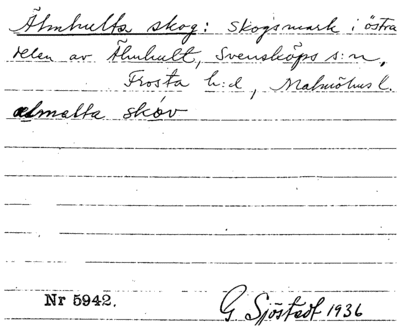 Älmhulta skog: Skogsmark i östra
delen av Älmhult, Svensköps s:n,
Frosta h:d, Malmöhus l.
almalta skóv
Nr 5942.
G Sjöstedt 1936